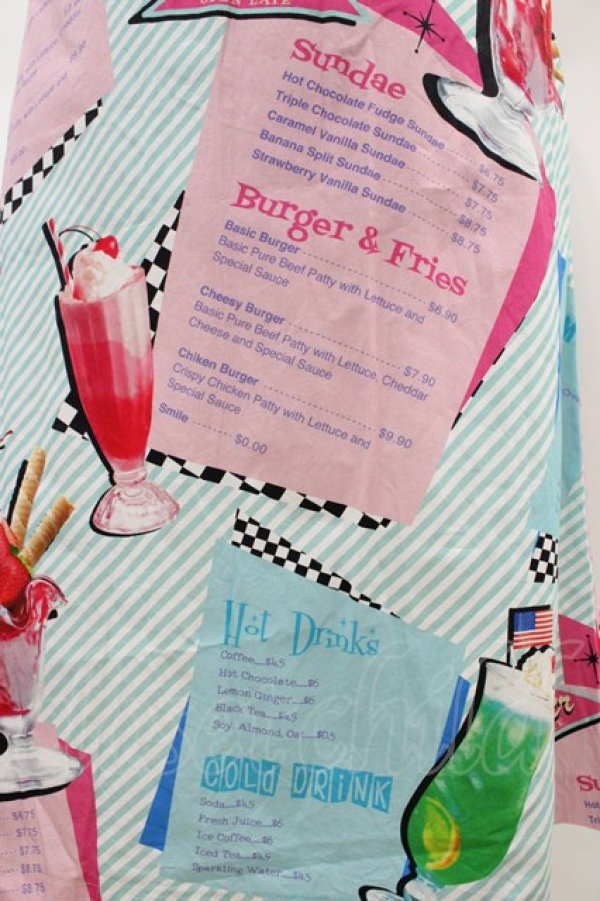 OPEN LATE
Sundae
Hot Chocolate Fudge Sundae $6.75
Triple Chocolate Sundae $7.75
Caramel Vanilla Sundae $7.75
Banana Split Sundae $8.75
Strawberry Vanilla Sundae $8.75
Burger & Fries
Basic Burger $6.90
Basic Pure Beef Patty with Lettuce and
Special Sauce
Cheesy Burger $7.90
Basic Pure Beef Patty with Lettuce, Cheddar
Cheese and Special Sauce
Chiken Burger $9.90
Crispy Chicken Patty with Lettuce and
Special Sauce
Smile $0.00
Hot Drinks
Coffee $4.5
Hot Chocolate $6
Lemon Ginger $6
Black Tea $4.5
Soy, Almond, Oat $0.5
COLD DRINK
Soda $4.5
Fresh Juice $6
Ice Coffee $6
Iced Tea $4.5
Sparkling Water $4.5
$6.75
$7.75
$7.75
$8.75
$8.75
Su
Hot
Tri